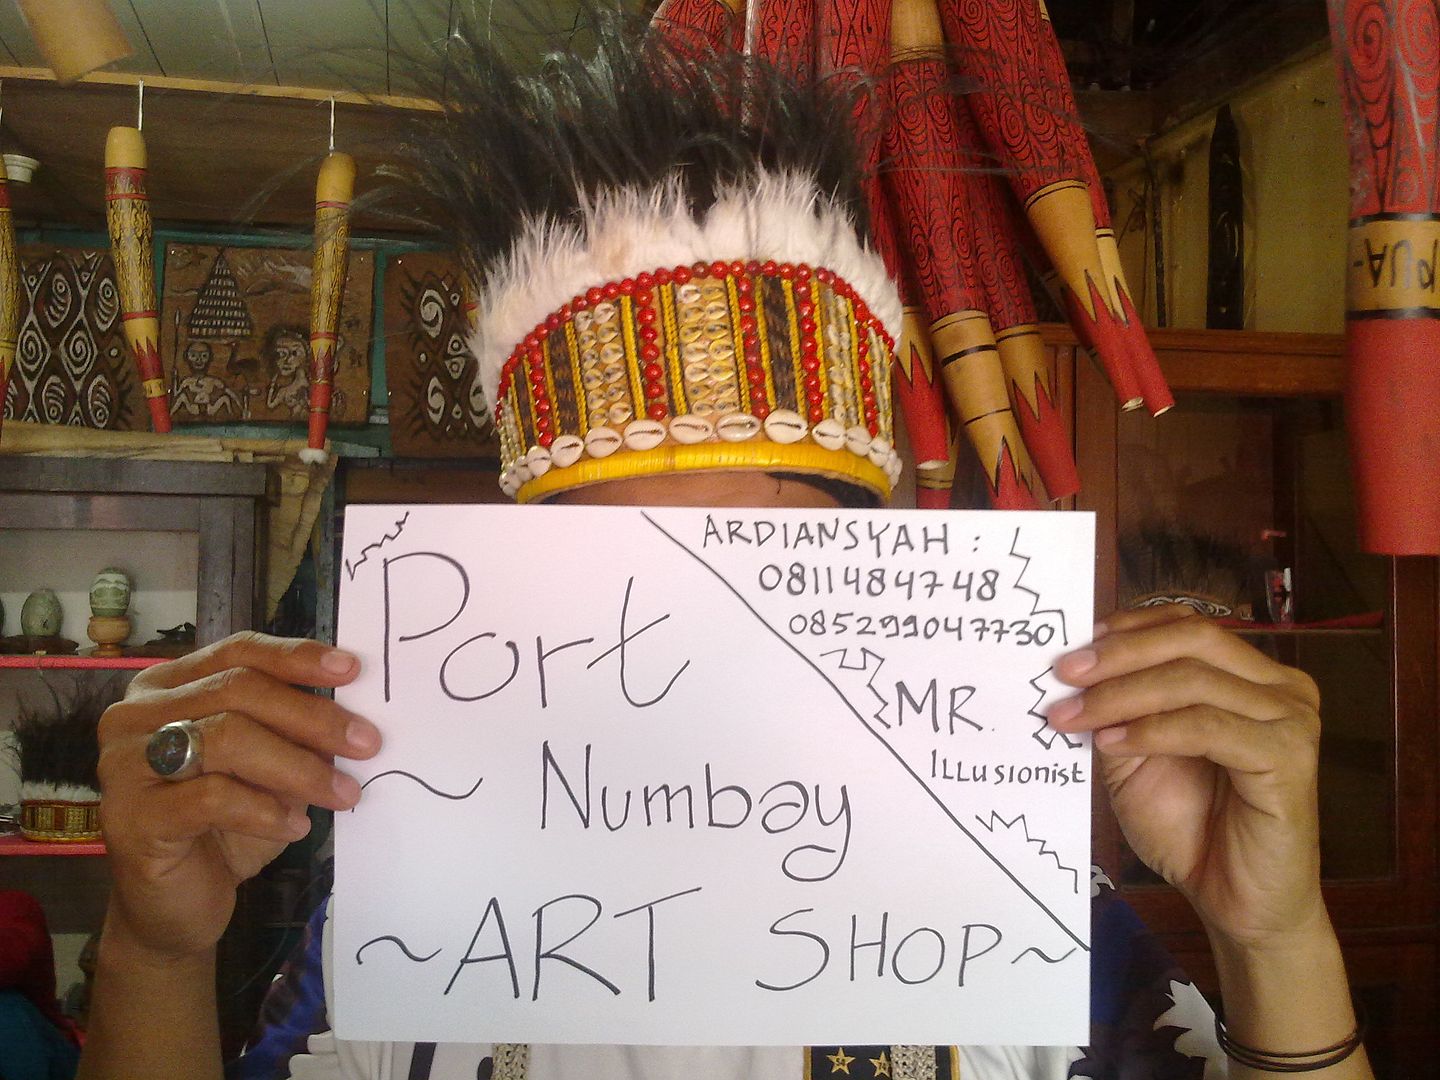 Port
~ Numbay
~ART SHOP~
ARDIANSYAH :
0811484748
085299047730
MR.
ILLusionist